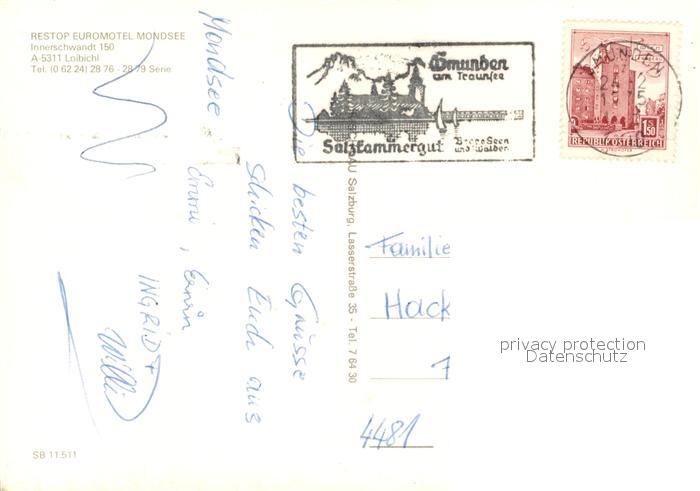 RESTOP EUROMOTEL MONDSEE
Innerschwandt 150
A-5311 Loibichl
Tel. (0 62 24) 28 76 - 28 79 Serie
Gmunden
am Traunsee
Salzkammergut
Berge Seen
und Wälder
GMUNDEN
1.50
REPUBLIK ÖSTERREICH
Die besten Grüsse
schicken Euch aus
Mondsee
Emmi, Erwin
INGRID +
Willi
AU Salzburg, Lasserstraße 35 - Tel. 7 64 30
Familie
Hack
7
4481
privacy protection
Datenschutz
SB 11.511